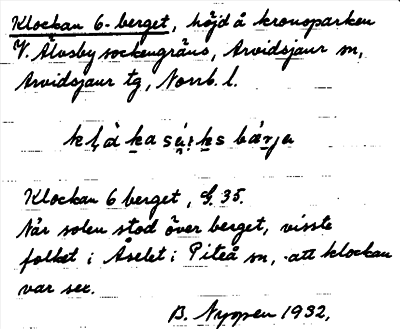 Klockan 6-berget, höjd å kronoparken
V. Älvsby sockengräns, Arvidsjaur sn,
Arvidsjaur tg, Norrb. l.
klåkasäksbärja
Klockan 6 berget, G. 35.
När solen stod över berget, visste
folket i Åselet i Piteå sn, att klockan
var sex.
B. Nyppen 1932,